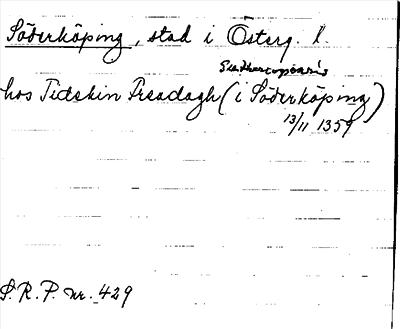 Söderköping, stad i Österg. l.
hos Tidekin Freadagh (i Söderköping)
13/11 1359
S.R.P. nr. 429